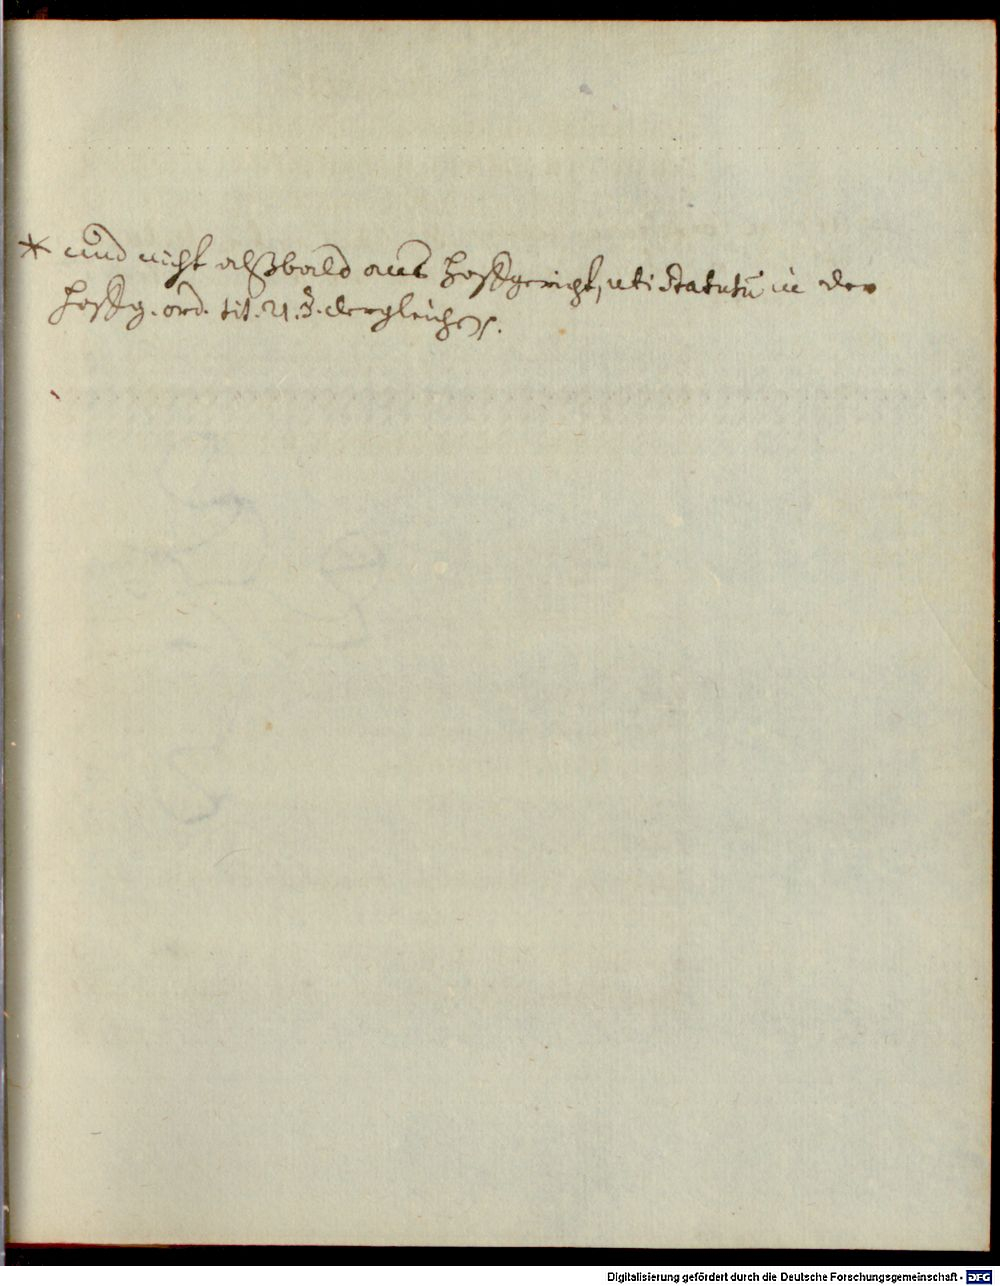 * und nicht alßbald ans Hoffgericht, uti statutū in der
Hoffg. ord. tit. 21. §. dergleichen.
Digitalisierung gefördert durch die Deutsche Forschungsgemeinschaft - DFG